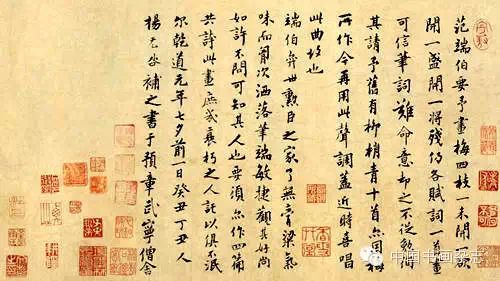 范端伯要予畫梅四枝一未開一欲
開一盛開一將殘仍各賦詞一首畫
可信筆詞難命意却之不從勉徇
其請予舊有柳梢青十首亦因梅
所作今再用此聲調蓋近時喜唱
此曲故也
端伯奕世勳臣之家了無膏粱氣
味而胸次洒落筆端敏捷觀其好尚
如許不問可知其人也要須亦作四篇
共誇此畫庶幾衰朽之人託以俱不泯
尔乾道元年七夕前一日癸丑丁丑人
揚无咎補之書于預章武寧僧舍
中国书画杂志